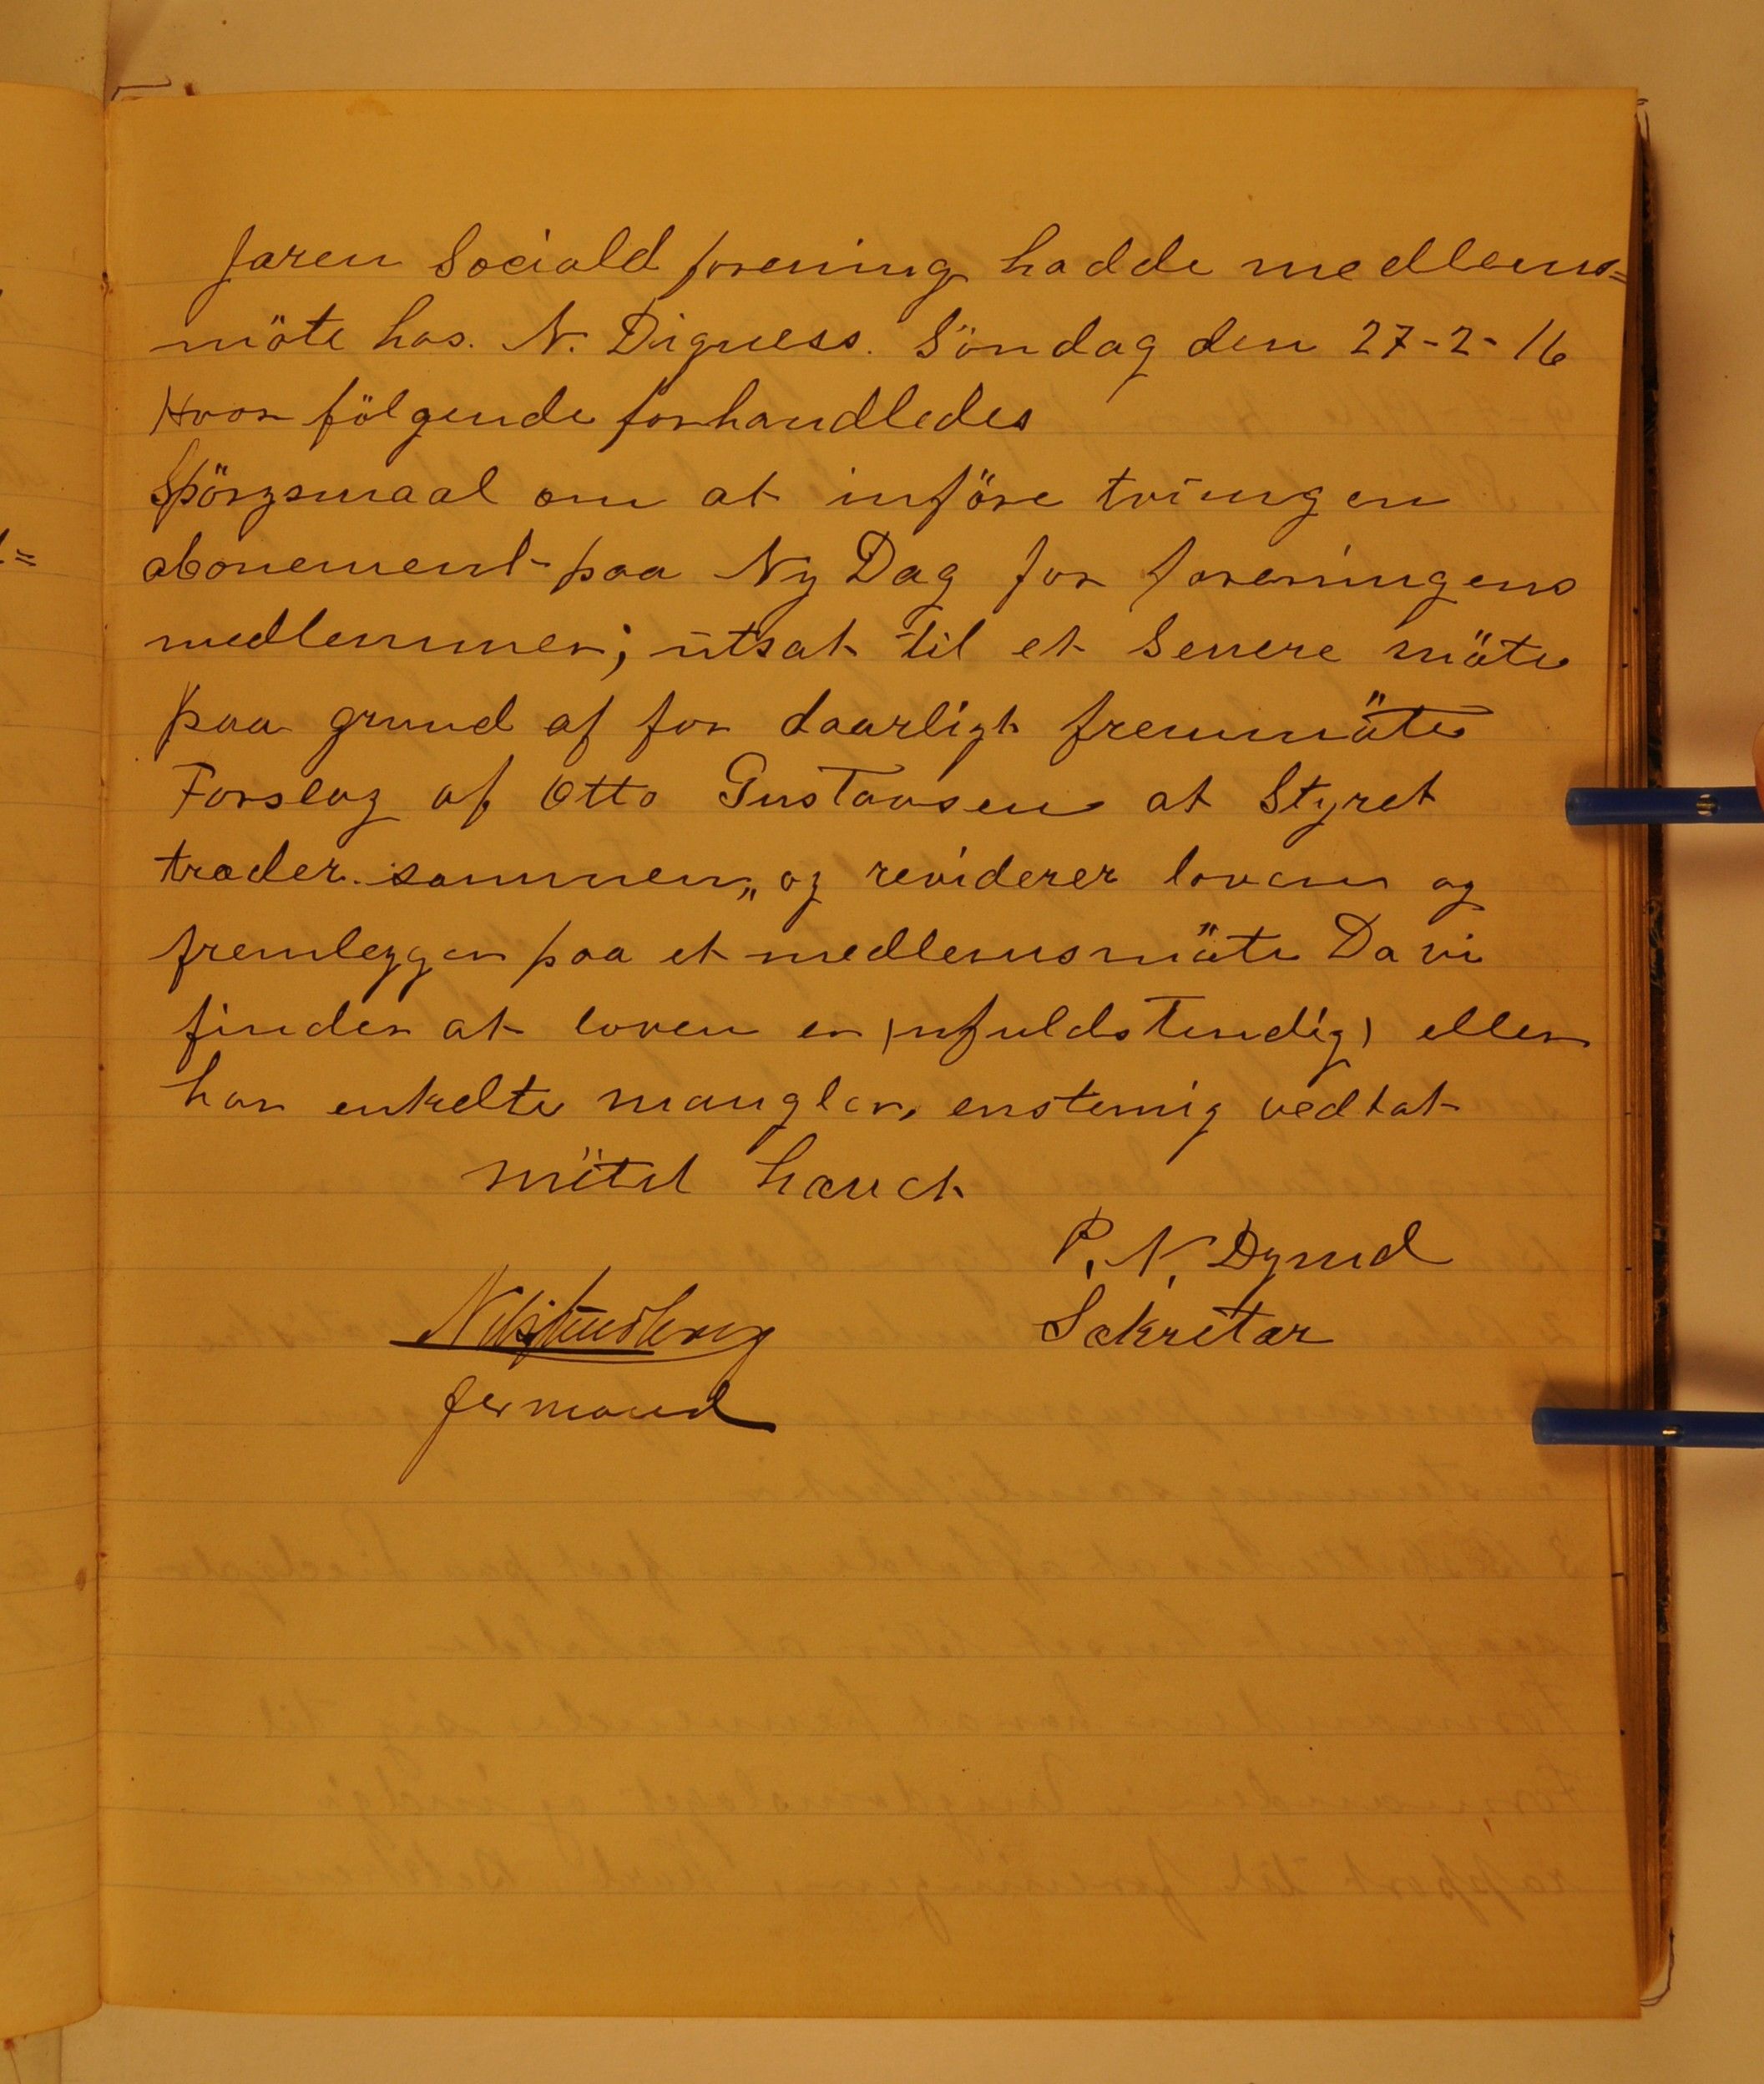 Jaren Sociald forening hadde medlems=
möte hos. N. Digness. Söndag den 27-2-16
Hvor fölgende forhandledes
Spörgsmaal om at inføre tvungen
abonement paa Ny Dag for foreningens
medlemmer; utsat til et senere möte
paa grund af for daarligt fremmöte
Forslag af Otto Gustavsen at Styret
træder sammen„ og reviderer loven og
fremlegger paa et medlemsmöte Da vi
finder at loven er (ufuldstendig) eller
har enkelte mangler, enstemig vedtat
mötet hævet
P. N. Dynud
Sekretær
formand